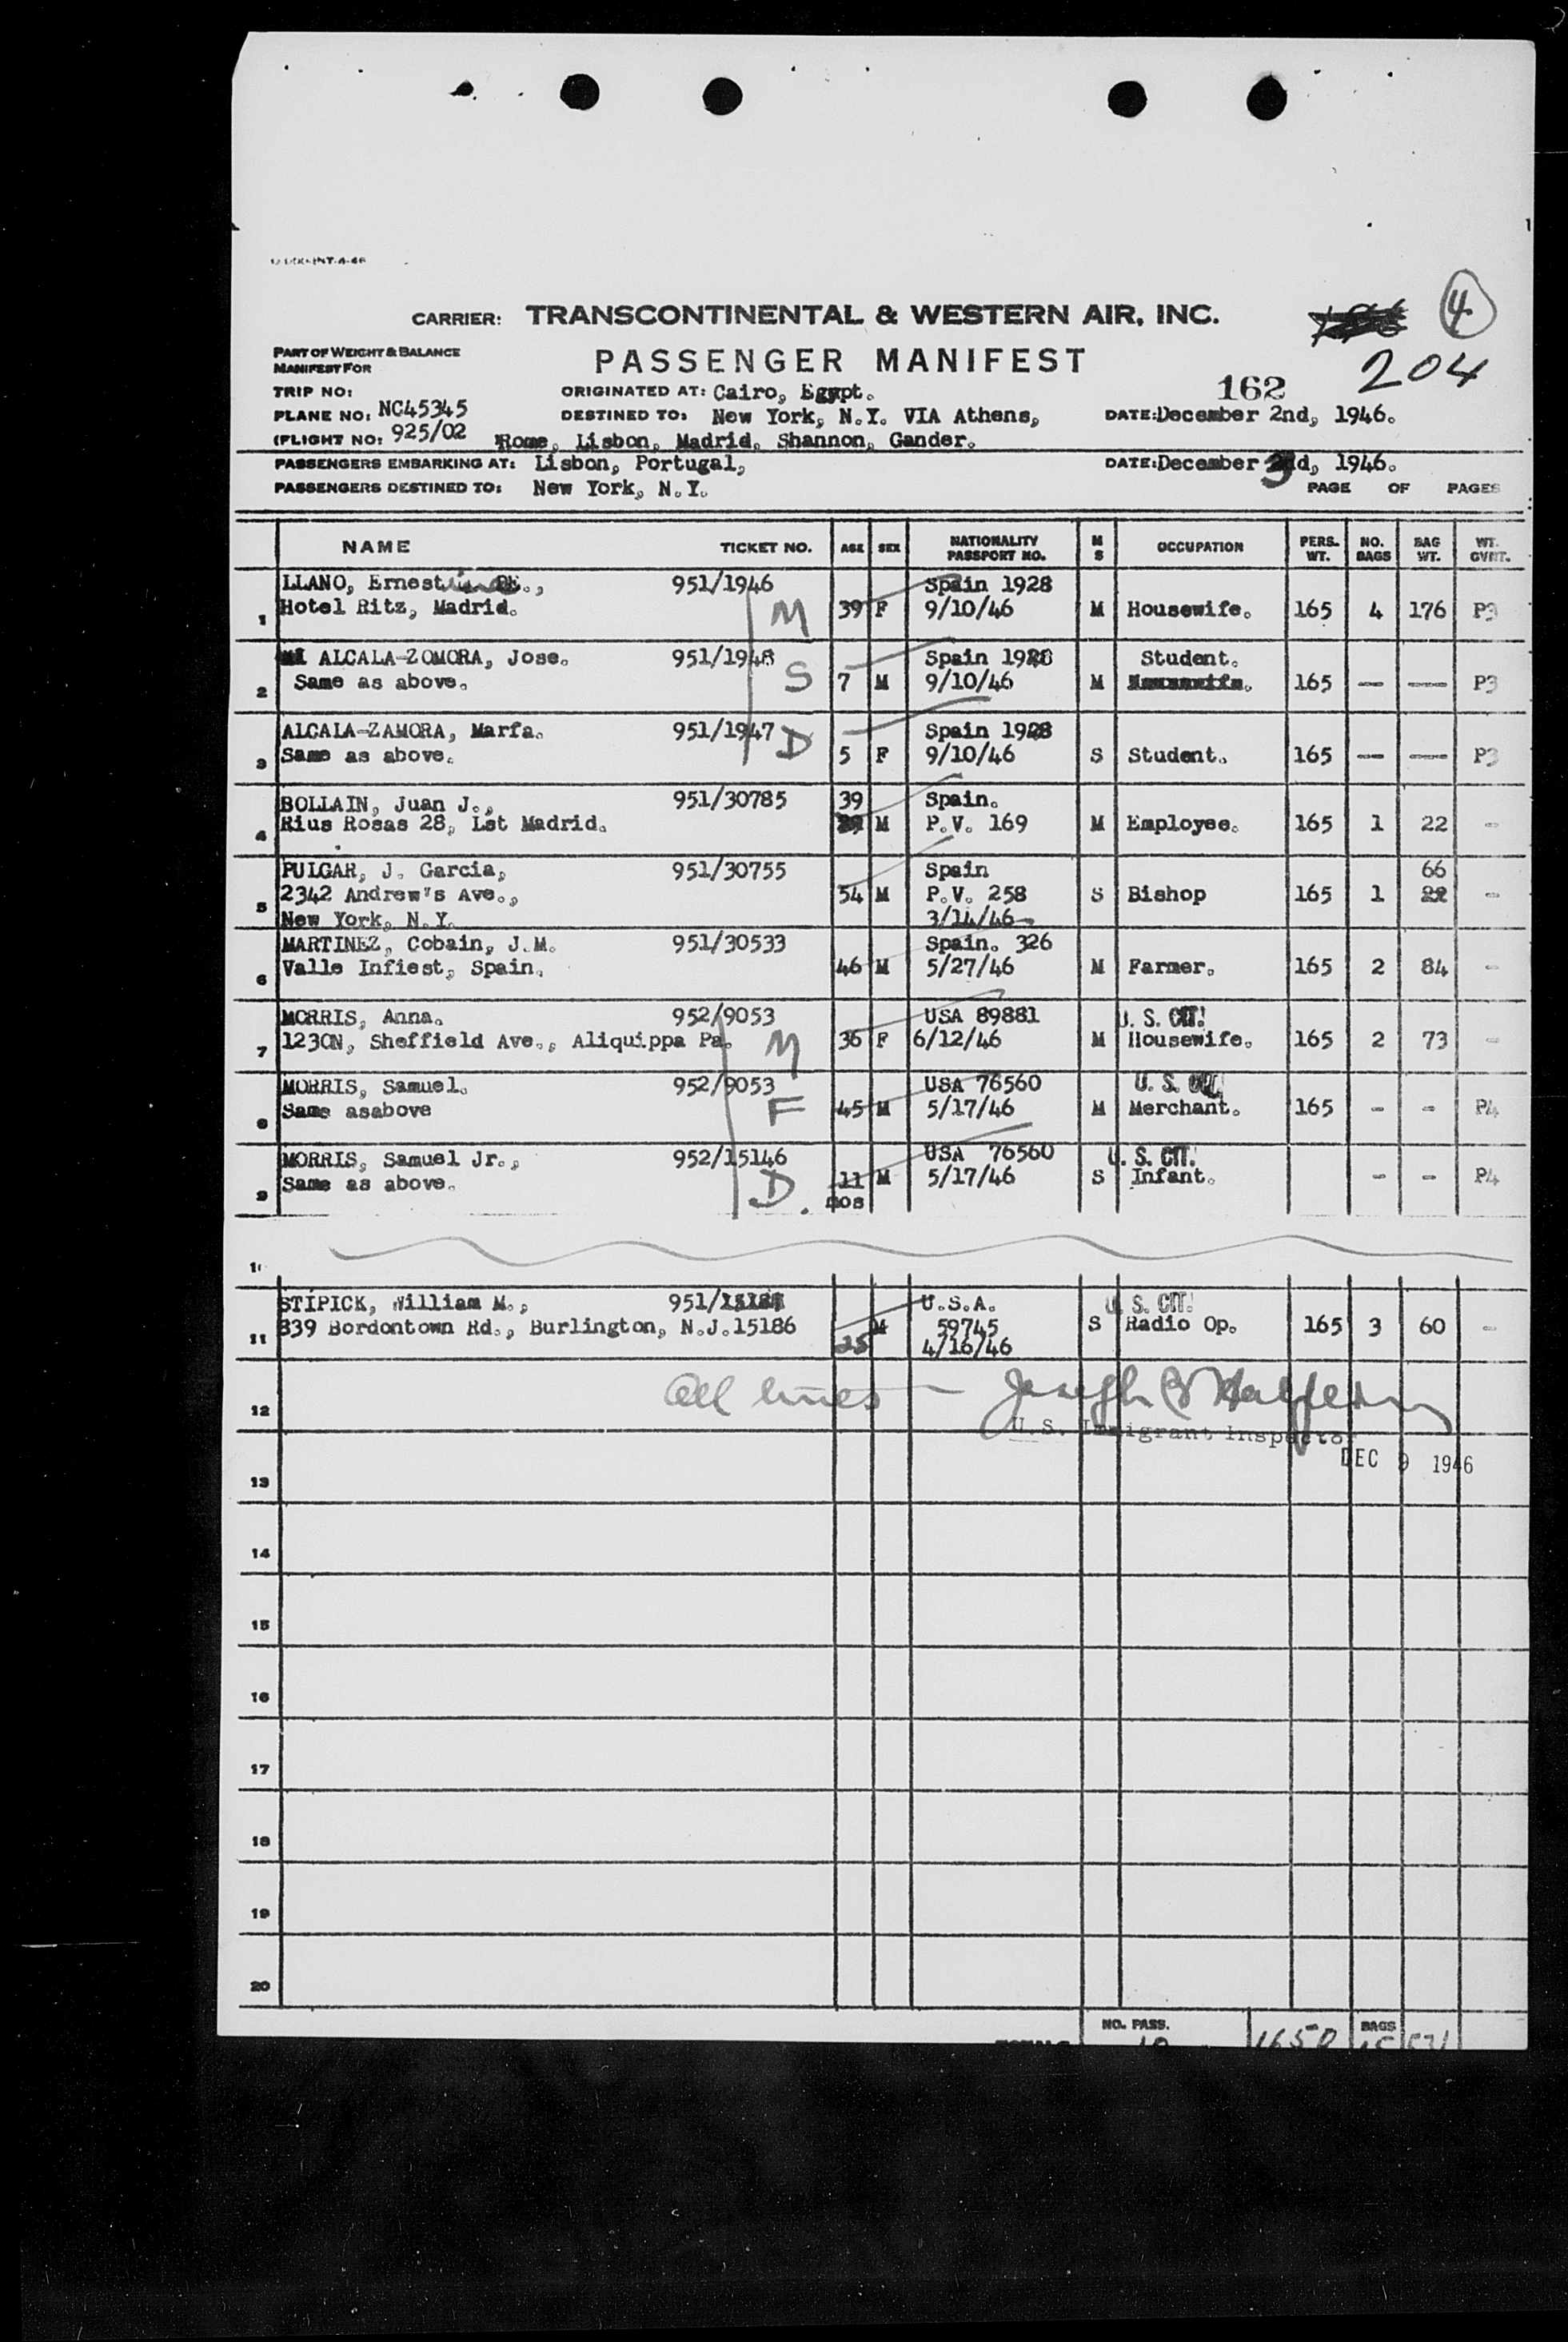 CARRIER: TRANSCONTINENTAL & WESTERN AIR, INC.
4
PART OF WEIGHT & BALANCE
MANIFEST FOR
PASSENGER MANIFEST
204
TRIP NO:
ORIGINATED AT: Cairo, Egypt.
162
PLANE NO: NC45345
DESTINED TO: New York, N.Y. VIA Athens,
DATE: December 2nd, 1946.
(FLIGHT NO: 925/02 Rome, Lisbon, Madrid, Shannon, Gander.
PASSENGERS EMBARKING AT: Lisbon, Portugal,
DATE: December 3d, 1946.
PASSENGERS DESTINED TO: New York, N.Y.
PAGE OF PAGES
NAME TICKET NO. AGE SEX NATIONALITY PASSPORT NO. M S OCCUPATION PERS. WT. NO. BAGS BAG WT. WT. GVNT.
LLANO, Ernestina DE., 951/1946 Spain 1928
1 Hotel Ritz, Madrid. M 39 F 9/10/46 M Housewife. 165 4 176 P3
ALCALA-ZOMORA, Jose. 951/1948 Spain 1928 Student.
2 Same as above. S 7 M 9/10/46 M 165 — — P3
ALCALA-ZAMORA, Marfa. 951/1947 Spain 1928
3 Same as above. D 5 F 9/10/46 S Student. 165 — — P3
BOLLAIN, Juan J., 951/30785 39 Spain.
4 Rius Rosas 28, Lst Madrid. M P.V. 169 M Employee. 165 1 22 -
PULGAR, J. Garcia, 951/30755 Spain 66
5 2342 Andrew's Ave., 54 M P.V. 258 S Bishop 165 1 22 -
New York, N.Y. 3/14/46
MARTINEZ, Cobain, J.M. 951/30533 Spain. 326
6 Valle Infiest, Spain. 46 M 5/27/46 M Farmer. 165 2 84 -
MORRIS, Anna. 952/9053 USA 89881 U. S. CIT.
7 1230N, Sheffield Ave., Aliquippa Pa. M 36 F 6/12/46 M Housewife. 165 2 73 -
MORRIS, Samuel. 952/9053 USA 76560 U. S. CIT.
8 Same asabove F 45 M 5/17/46 M Merchant. 165 - - P4
MORRIS, Samuel Jr., 952/15146 USA 76560 U. S. CIT.
9 Same as above. D. 11 M 5/17/46 S Infant. - - P4
mos
STIPICK, William M., 951/ U.S.A. U. S. CIT.
11 339 Bordontown Rd., Burlington, N.J. 15186 25 M 59745 S Radio Op. 165 3 60 -
4/16/46
12 All lines — Joseph B Halpern
U.S. Immigrant Inspector
DEC 9 1946
13
14
15
16
17
18
19
20
NO. PASS. BAGS
10 1650